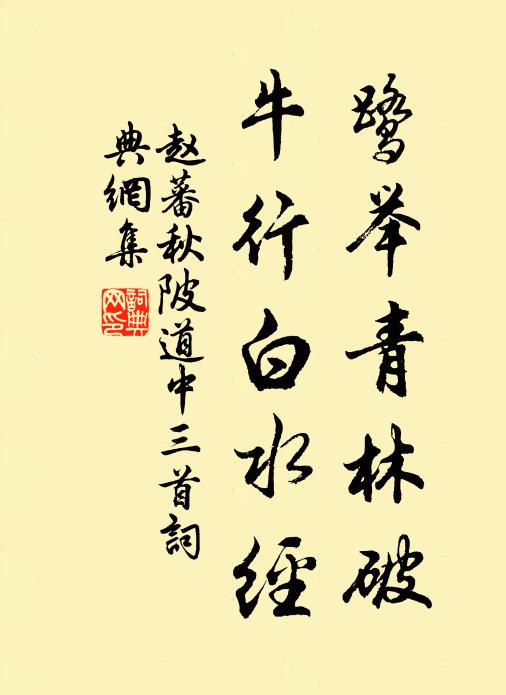 鹭举青林破
牛行白水經
赵蕃秋陂道中三首詞
典網集
詞典
网印